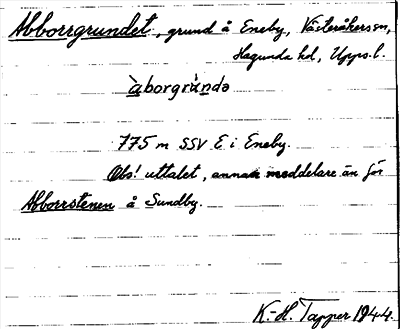 Abborrgrundet, grund å Eneby, Västeråkers sn,
Hagunda hd, Upps. l.
àborgrùndə
775 m SSV E i Eneby.
Obs! uttalet, annan meddelare än för
Abborrstenen å Sundby.
K.-H. Tapper 1944.